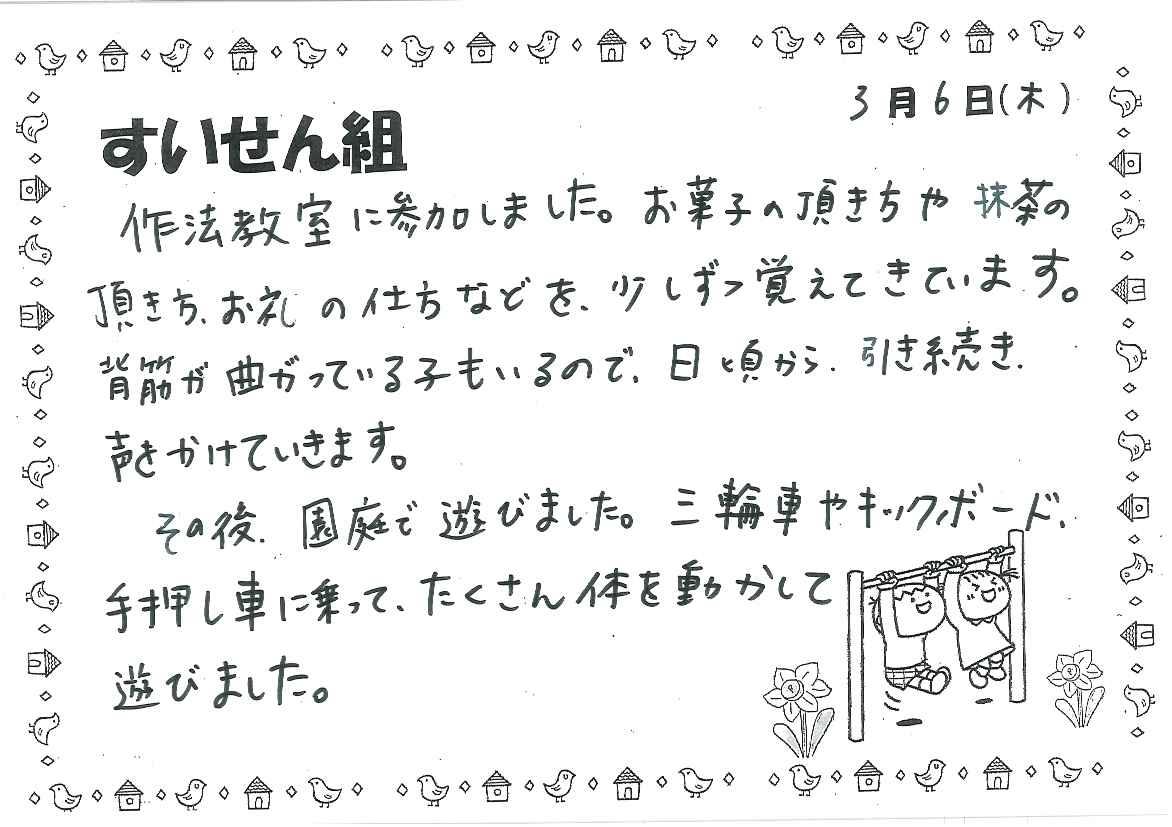 3月6日(木)
すいせん組
作法教室に参加しました。お菓子の頂き方や抹茶の
頂き方、お礼の仕方などを、少しずつ覚えてきています。
背筋が曲がっている子もいるので、日頃から、引き続き、
声をかけていきます。
その後、園庭で遊びました。三輪車やキックボード、
手押し車に乗って、たくさん体を動かして
遊びました。